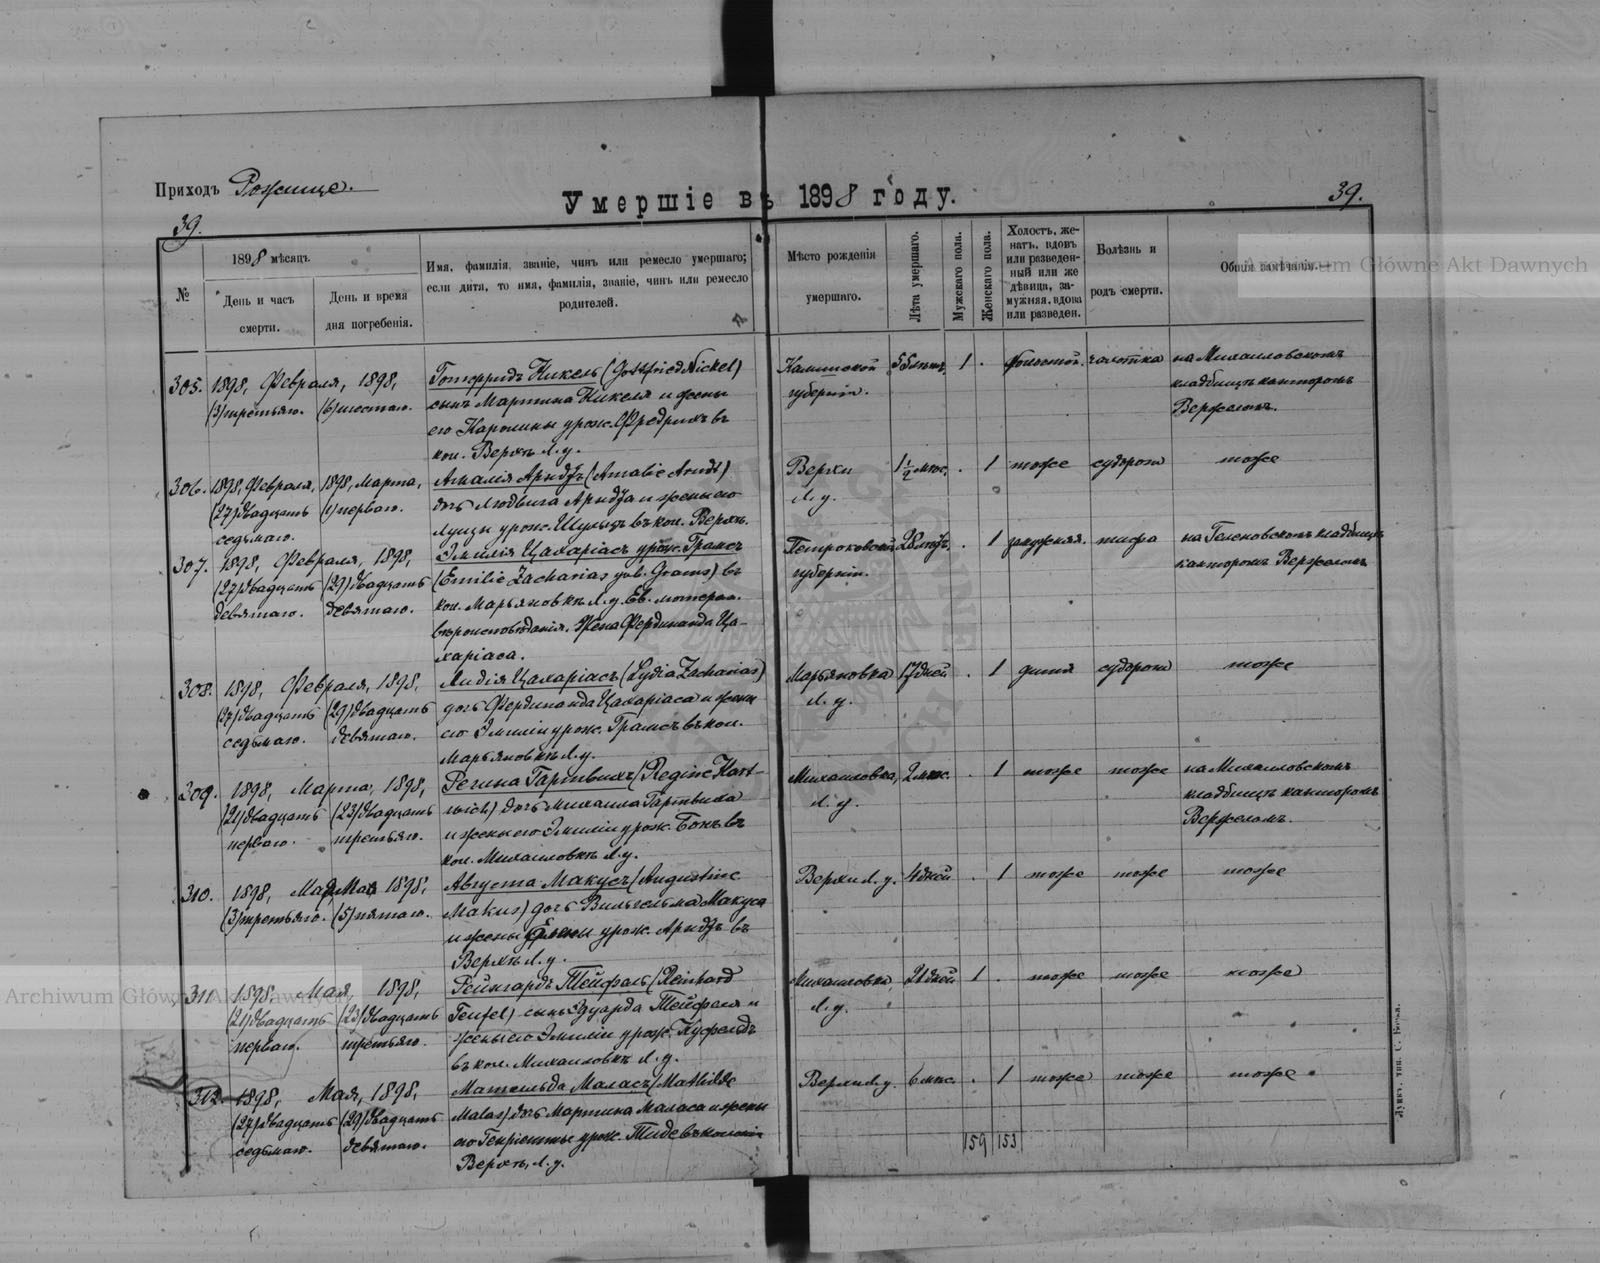 Приходъ Рожище.
Умершіе въ 1898 году.
39.
39.
№
1898 мѣсяцъ
День и часъ смерти.
День и время дня погребенія.
Имя, фамилія, званіе, чинъ или ремесло умершаго;
если дитя, то имя, фамилія, званіе, чинъ или ремесло
родителей.
Мѣсто рожденія
умершаго.
Лѣта умершаго.
Мужскаго пола.
Женскаго пола.
Холостъ, же-
натъ, вдовъ
или разведен-
ный или же
дѣвица, за-
мужняя, вдова
или разведен.
Болѣзнь и
родъ смерти.
Общія замѣчанія.
305. 1898, Февраля, 1898,
(3) третьяго. (6) шестаго.
Готфридъ Никель (Gottfried Nickel)
сынъ Мартина Никеля и жены
его Каролины урож. Фредрихъ въ
кол. Верхъ Л. у.
Калишской губерніи.
1 . чахотка
на Михаиловскомъ
кладбищѣ канторомъ
306. 1898, Февраля, 1898, Марта,
(27) двадцать седьмаго. (1) перваго.
Амалія Арндтъ (Amalie Arndt)
дочь Людвига Арндта и жены его
урож. Шульцъ въ кол. Верхъ.
Верхи Л. у.
1½ мѣс. . 1 тоже судороги тоже
307. 1898, Февраля, 1898,
(27) двадцать (29) двадцать девятаго.
Эмилія Цахаріасъ урож. Грамсъ
(Emilie Zacharias geb. Grams) въ
кол. Марьяновкѣ Л. у. Ев. лютеран.
вѣроисповѣданія. Жена Фердинанда Ца-
харіаса.
Петроковской губерніи.
28 лѣтъ . 1 замужняя. тифа
кладбищѣ
канторомъ
308. 1898, Февраля, 1898,
(27) двадцать седьмаго. (29) двадцать девятаго.
Лидія Цахаріасъ (Lydia Zacharias)
дочь Фердинанда Цахаріаса и жены
его Эмиліи урож. Грамсъ въ кол.
Марьяновкѣ Л. у.
Марьяновка Л. у.
17 дней . 1 дитя судороги тоже
309. 1898, Марта, 1898,
(21) двадцать перваго. (23) двадцать третьяго.
Регина Гартвихъ (Regine Hart-
wich) дочь Михаила Гартвиха
и жены его Эмиліи урож. Бонъ въ
кол. Михаиловкѣ Л. у.
Михаиловка, Л. у.
2 мѣс. . 1 тоже тоже
на Михаиловскомъ
кладбищѣ канторомъ
310. 1898, Мая, Мая 1898,
(3) третьяго. (5) пятаго.
Августа Макусъ (Augustine
Makus) дочь Вильгельма Макуса
и жены урож. Арндтъ въ
Верхъ Л. у.
Верхи Л. у. 4 дней . 1 тоже тоже тоже
311 1898, Мая, 1898,
(21) двадцать перваго. (23) двадцать третьяго.
Рейнгардъ Тейфель (Reinhard
Teufel) сынъ Эдуарда Тейфеля и
жены его Эмиліи урож. Куфельдъ
въ кол. Михаиловкѣ Л. у.
Михаиловка, Л. у.
21 дней 1 . тоже тоже тоже
312. 1898, Мая, 1898,
(27) двадцать седьмаго. (29) двадцать девятаго.
Матильда Маласъ (Mathilde
Malas) дочь Мартина Маласа и жены
его Генріетты урож. Тиде въ колоніи
Верхъ, Л. у.
Верхи Л. у. 6 мѣс. . 1 тоже тоже тоже
159 153
Archiwum Główne Akt Dawnych
Archiwum Główne Akt Dawnych